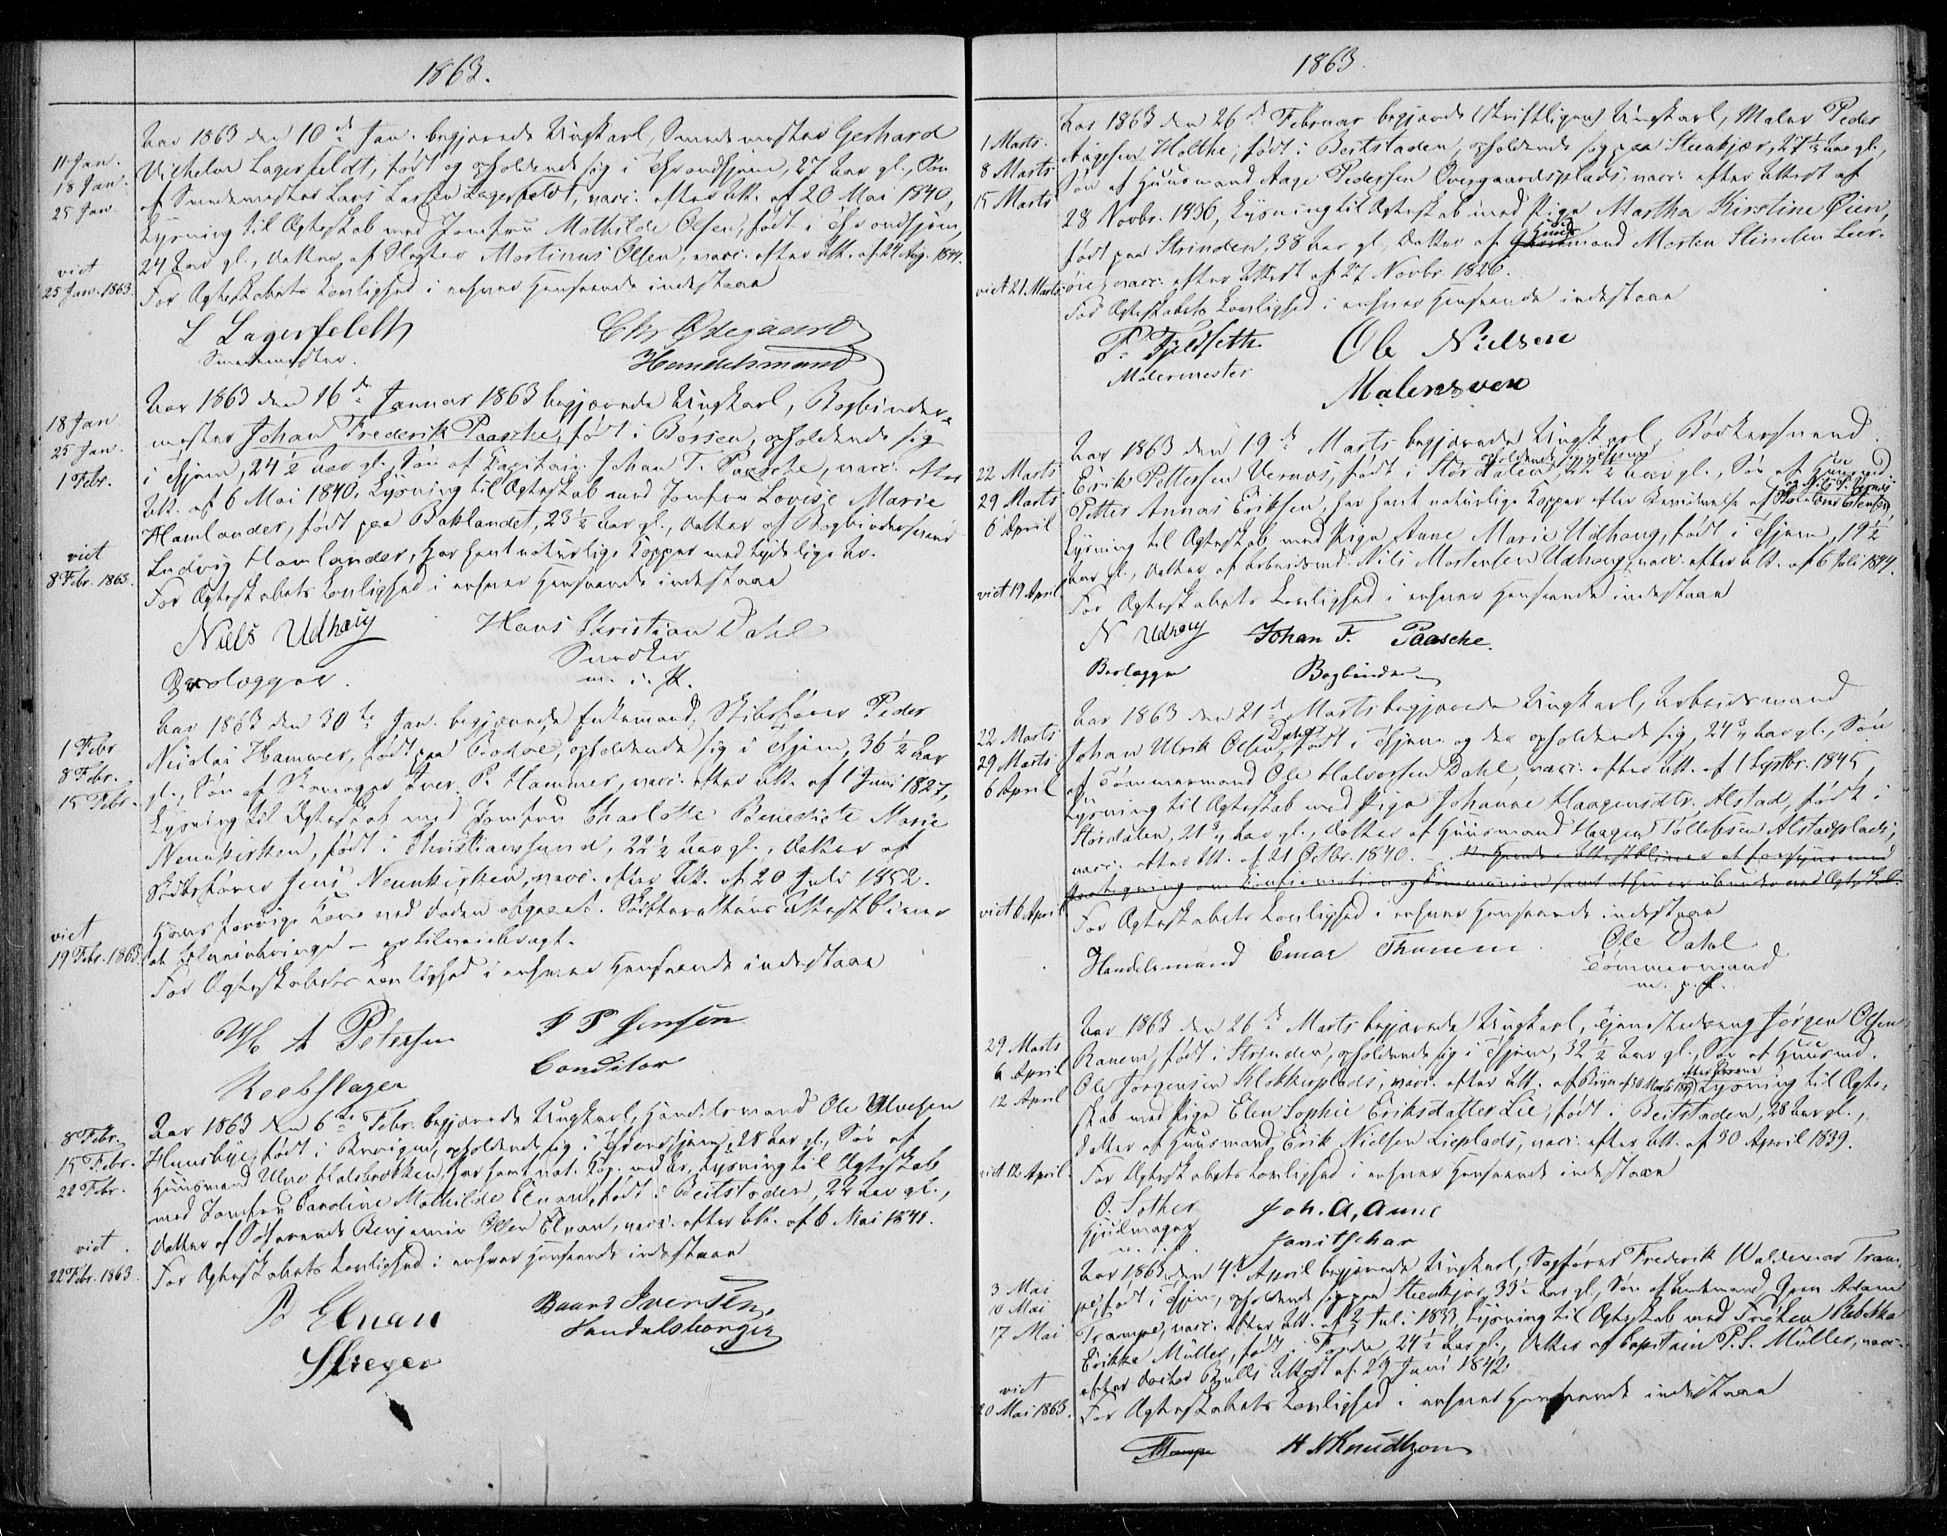 1863.
11 Jan.
18 Jan.
25 Jan.
viet
25 Jan. 1863.
Aar 1863 den 10de Jan. begjærede Ungkarl, Smedemester Gerhard
Vilhelm Lagerfeldt, født og opholdende sig i Throndhjem, 27 Aar gl., Søn
af Smedemester Lars Larsen Lagerfeldt, vacc. efter Att. af 20 Mai 1840,
Lysning til Ægteskab med Jomfru Mathilde Olsen, født i Throndhjem,
24 Aar gl., Datter af Slagter Martinus Olsen, vacc. efter Att. af 24 Aug. 1841.
For Ægteskabets Lovlighed i enhver Henseende indestaae
L Lagerfeldth Chr Ødegaard
Smedemester. Handelsmand
18 Jan
25 Jan.
1 Febr.
viet
8 Febr. 1863.
Aar 1863 den 16de Januar 1863 begjærede Ungkarl, Bogbinder-
mester Johan Frederik Paasche, født i Børsen, opholdende sig
i Thjem, 24½ Aar gl., Søn af Kapitain Johan T. Paasche, vacc. efter
Att. af 6 Mai 1840, Lysning til Ægteskab med Jomfru Lovise Marie
Hamlander, født paa Baklandet, 23½ Aar gl., Datter af Bogbindersvend
Ludvig Hamlander, har havt naturlige Kopper med tydelige Ar.
For Ægteskabets Lovlighed i enhver Henseende indestaae
Niels Udhaug Hans Christian Dahl
Brolægger. Snedker
m. i. P.
1 Febr
8 Febr.
15 Febr.
viet
19 Febr. 1863
Aar 1863 den 30te Jan. begjærede Enkemand, Skibsfører Peder
Nicolai Hammer, født paa Bodøe, opholdende sig i Thjem, 36½ Aar
gl., Søn af Skomager Iver P. Hammer, vacc. efter Att. af 1 Juni 1827,
Lysning til Ægteskab med Jomfru Charlotte Benedicte Marie
Neunkirken, født i Christiansund, 22½ Aar gl., Datter af
Skibsfører Jens Neunkirken, vacc. efter Att. af 20 Juli 1852.
Hans forrige Kone ved Døden afgaaet. Skifterettens Attest bliver
at tilveiebringe – er tilveiebragt.
For Ægteskabets Lovlighed i enhver Henseende indestaae
A Petersen P P Jensen
Reebslager Conditor
8 Febr.
15 Febr.
22 Febr.
viet
22 Febr. 1863.
Aar 1863 den 6te Febr. begjærede Ungkarl, Handelsmand Ole Ulvesen
Huusbye, født i opholdende sig i Throndhjem, 28 Aar gl., Søn af
Huusmand har havt nat. Kop. med Ar, Lysning til Ægteskab
med Jomfru Caroline Mathilde Elnan, født i Beitstaden, 22 Aar gl.,
Datter af Søfarende Benjamin Olsen Elnan, vacc. efter Att. af 6 Mai 1841.
For Ægteskabets Lovlighed i enhver Henseende indestaae
B Elnan Baard Iversen
Handelsborger
1863.
1 Marts.
8 Marts
15 Marts
viet 21 Marts
Aar 1863 den 26de Februar begjærede (skriftligen) Ungkarl, Maler Peder
Aagesen Holthe, født i Beitstaden, opholdende sig paa Steenkjær, 27½ Aar gl.,
Søn af Huusmand Aage Pedersen Overgaardsplads, vacc. efter Attest af
28 Novbr. 1836, Lysning til Ægteskab med Pige Martha Kirstine Øien,
født paa Strinden, 38 Aar gl., Datter af Huusmand Morten Leer-
øien, vacc. efter Attest af 27 Novbr. 1826.
For Ægteskabets Lovlighed i enhver Henseende indestaae
P. Fjeldseth Ole Nielsen
Malermester Malersven
22 Marts
29 Marts
6 April
viet 19 April
Aar 1863 den 19de Marts begjærede Ungkarl, Bødkersvend
Erik Pettersen Vernæs, født i Størdalen, opholdende sig i Thjem, 22½ Aar gl., Søn af Huusmd.
Petter Annas Eriksen, har havt naturlige Kopper efter Bevidnelse af
Lysning til Ægteskab med Pige Anne Marie Udhaug, født i Thjem, 19½
Aar gl., Datter af Arbeidsmd. Nils Mortensen Udhaug, vacc. efter Att. af 6 Juli 1844.
For Ægteskabets Lovlighed i enhver Henseende indestaae
N Udhaug Johan F. Paasche.
Brolægger Bogbinder
22 Marts
29 Marts
6 April
viet 6 April
Aar 1863 den 21de Marts begjærede Ungkarl, Arbeidsmand
Johan Ulrik Olsen Dahl, født i Thjem og der opholdende sig, 24¾ Aar gl., Søn
af Tømmermand Ole Halvorsen Dahl, vacc. efter Att. af 1 Septbr. 1845,
Lysning til Ægteskab med Pige Johanne Haagensdtr. Alstad, født i
Størdalen, 21¾ Aar gl., Datter af Huusmand Haagen Tollefsen Alstadplads,
vacc. efter Att. af 21 Octbr. 1840. – Hendes Attest bliver at forsyne med
Paategning om Confirmation og Communion samt at hun er ubunden ved Ægteskab.
For Ægteskabets Lovlighed i enhver Henseende indestaae
Handelsmand Einar Thamm Ole Dahl
Tømmermand
m. p. P.
29 Marts
6 April
12 April
viet 12 April.
Aar 1863 den 26de Marts begjærede Ungkarl, Tjenestedreng Jørgen Olsen
Ranem, født i Strinden, opholdende sig i Thjem, 32½ Aar gl., Søn af Huusmd.
Ole Jørgensen Klokkerplads, vacc. efter Att. af Lysning til Ægte-
skab med Pige Elen Sophie Eriksdatter Lie, født i Beitstaden, 28 Aar gl.,
Datter af Huusmand Erik Nielsen Lieplads, vacc. efter Att. af 30 April 1839.
For Ægteskabets Lovlighed i enhver Henseende indestaae
O. Sother Joh. A. Aune
Hjulmager Janitschar
3 Mai
10 Mai
17 Mai
viet
20 Mai 1863.
Aar 1863 den 4de April begjærede Ungkarl, Sagfører Frederik Waldemar Tram-
pe, født i Thjem, opholdende sig paa Steenkjær, 33½ Aar gl., Søn af Amtmand, Grev Adam
Trampe, vacc. efter Att. af 2 Juli 1833, Lysning til Ægteskab med Frøken Rebekka
Erikke Müller, født i 24½ Aar gl., Datter af Capitain P. S. Müller, vacc.
efter Doctor Bulls Attest af 29 Juni 1842.
For Ægteskabets Lovlighed i enhver Henseende indestaae
Trampe H N Knudtzon